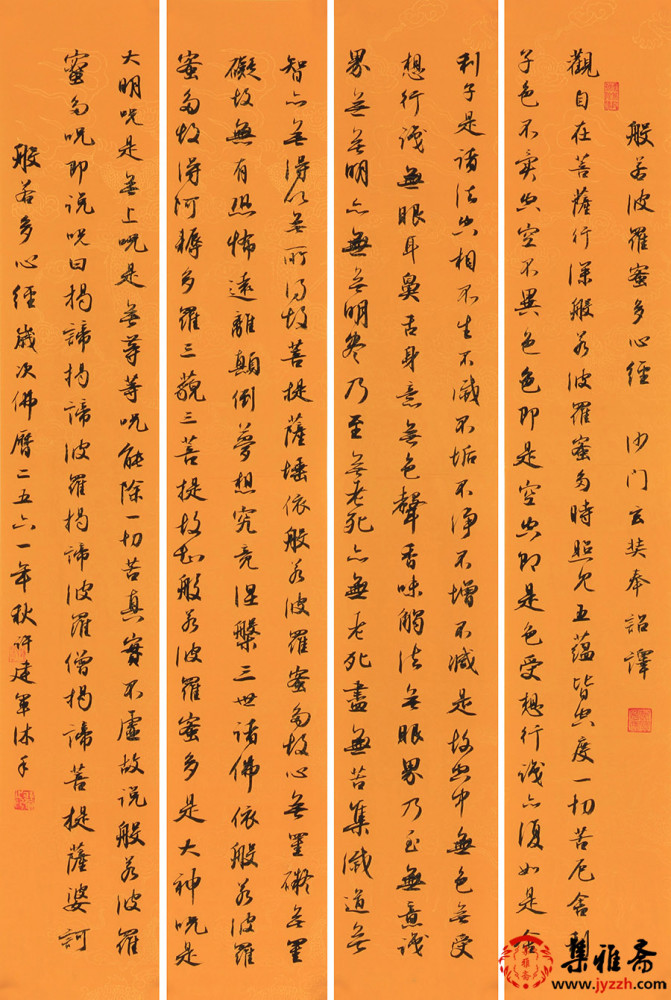 般若波羅蜜多心經 沙门玄奘奉詔譯
觀自在菩薩行深般若波羅蜜多時照見五蘊皆空度一切苦厄舍利
子色不異空空不異色色即是空空即是色受想行識亦復如是舍
利子是諸法空相不生不滅不垢不淨不增不減是故空中無色無受
想行識無眼耳鼻舌身意無色聲香味觸法無眼界乃至無意識
界無無明亦無無明盡乃至無老死亦無老死盡無苦集滅道無
智亦無得以無所得故菩提薩埵依般若波羅蜜多故心無罣礙無罣
礙故無有恐怖遠離顛倒夢想究竟涅槃三世諸佛依般若波羅
蜜多故得阿耨多羅三藐三菩提故知般若波羅蜜多是大神咒是
大明咒是無上咒是無等等咒能除一切苦真實不虛故说般若波羅
蜜多咒即说咒曰揭諦揭諦波羅揭諦波羅僧揭諦菩提薩婆訶
般若多心經歲次佛曆二五六一年秋許建軍沐手
集雅斋
www.jyzzh.com